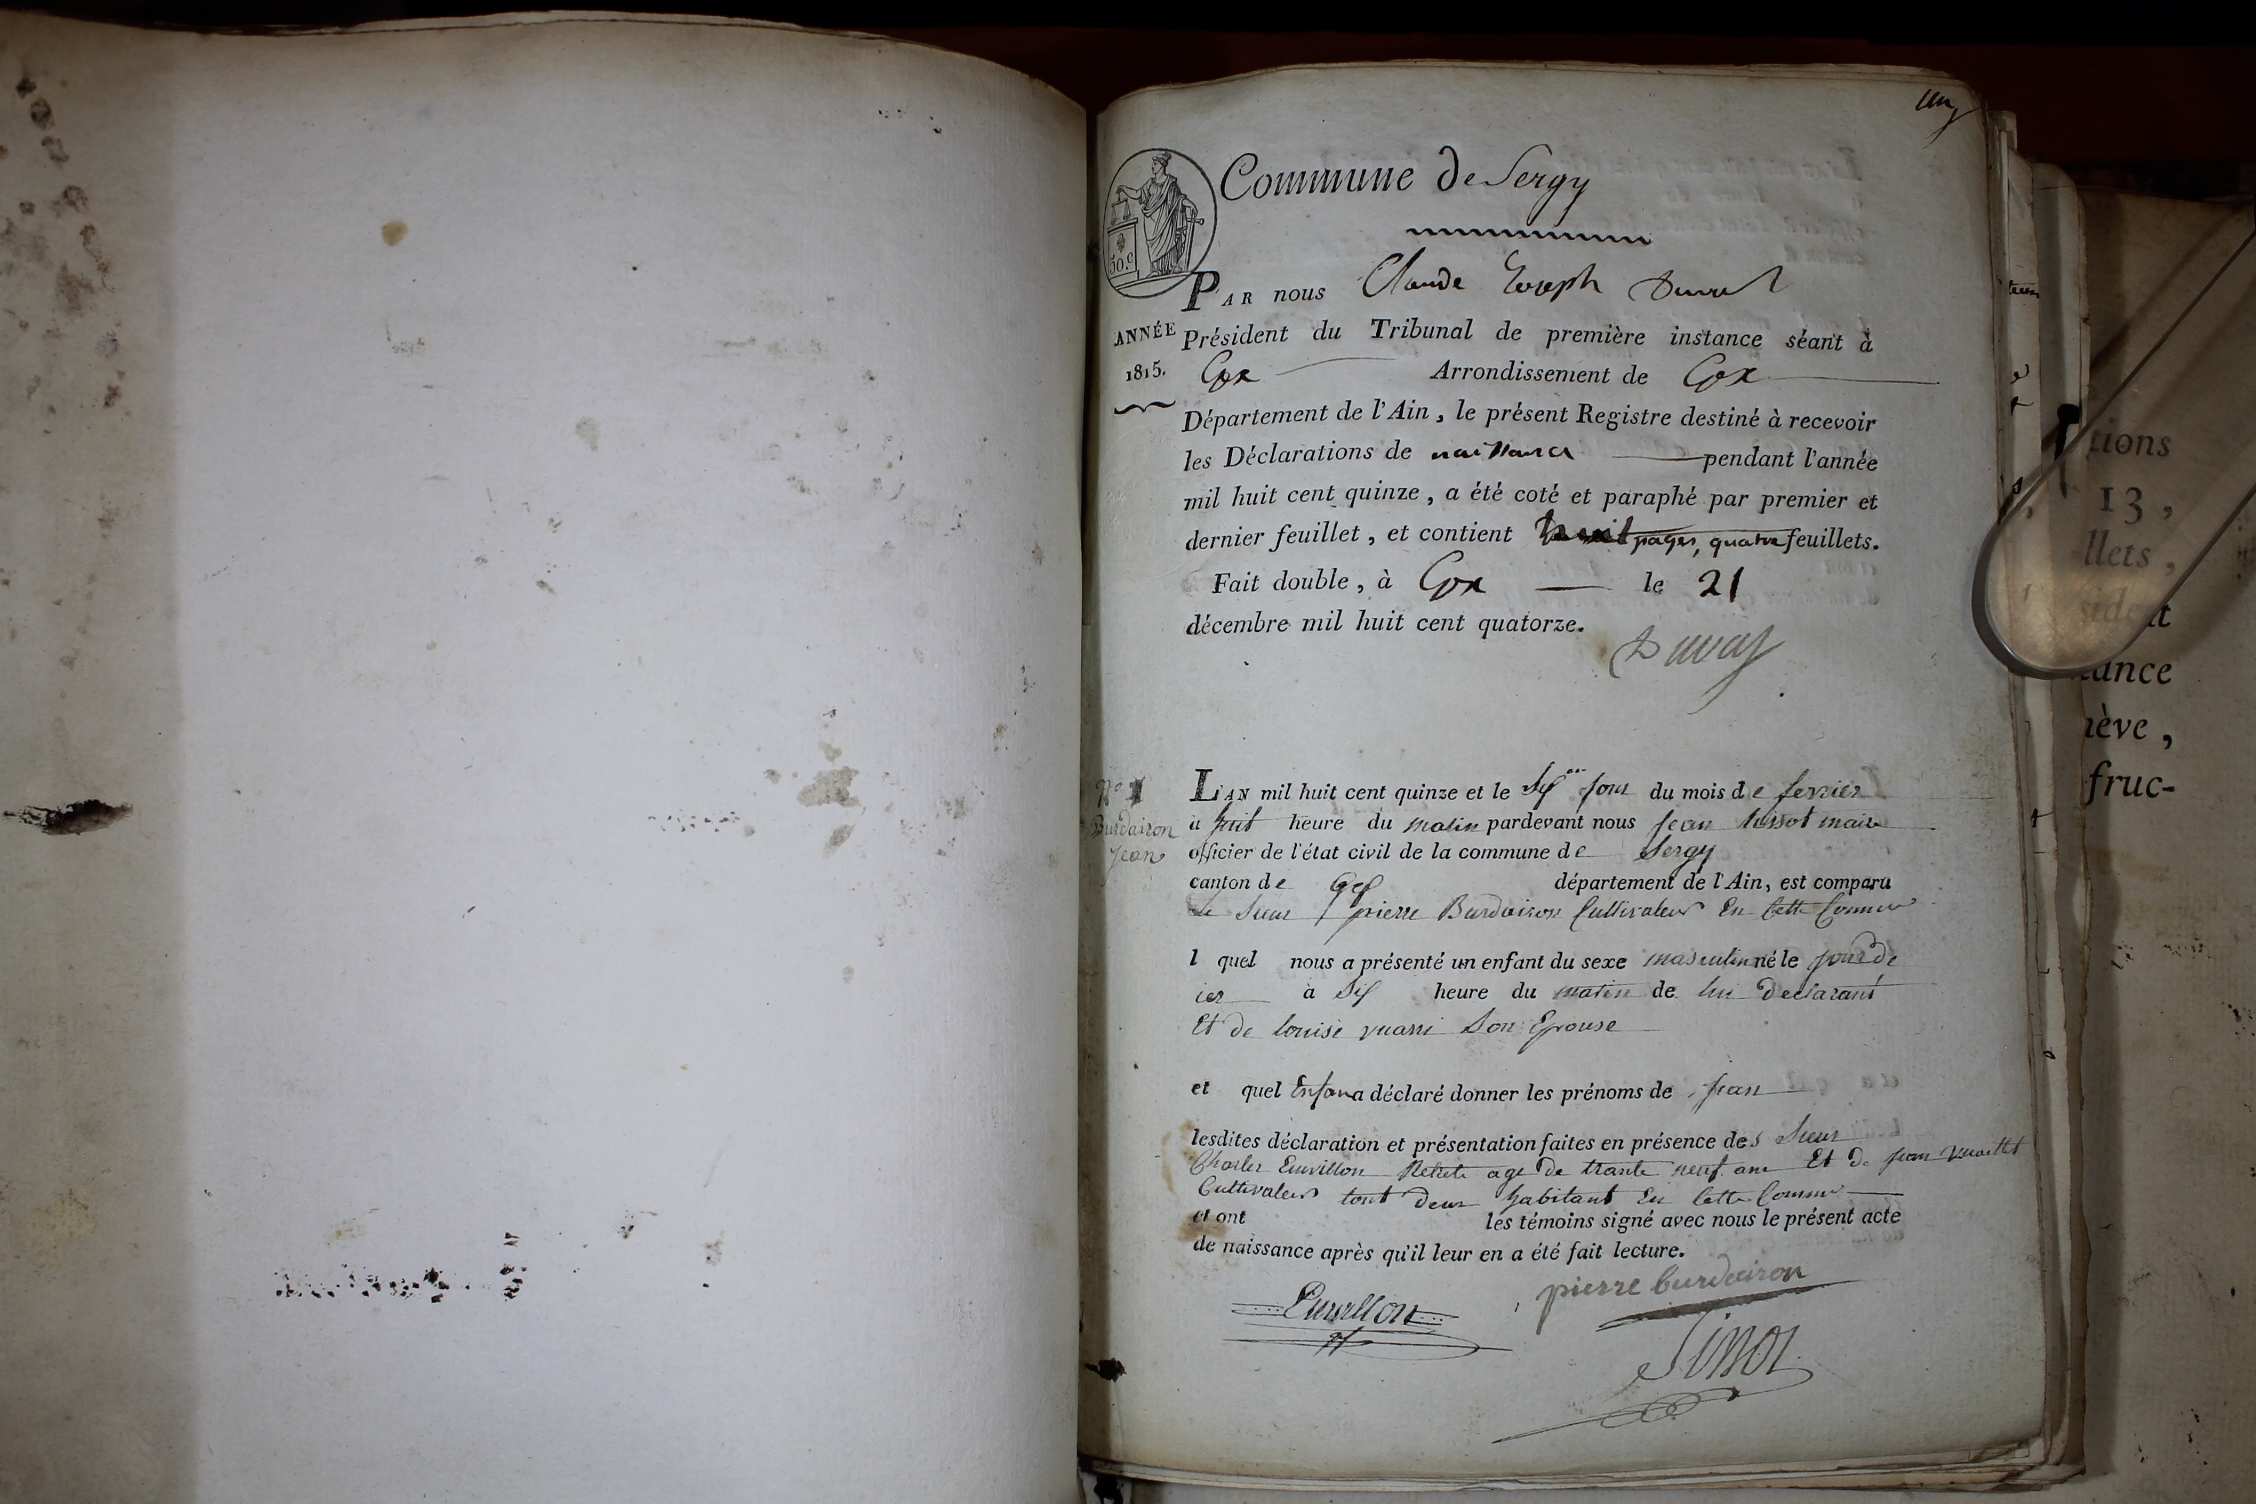 un
Commune de Sergy
50.c
PAR nous Claude Joseph Duval
ANNÉE
1815.
Président du Tribunal de première instance séant à
Gex Arrondissement de Gex
Département de l'Ain, le présent Registre destiné à recevoir
les Déclarations de naissance pendant l'année
mil huit cent quinze, a été coté et paraphé par premier et
dernier feuillet, et contient huit pages, quatre feuillets.
Fait double, à Gex le 21
décembre mil huit cent quatorze.
Duval
No 1
Burdairon
Jean
L'AN mil huit cent quinze et le Six jour du mois de fevrier
à huit heure du matin pardevant nous jean maire
officier de l'état civil de la commune de Sergy
canton de Gex département de l'Ain, est comparu
Le Sieur pierre Burdairon Cultivateur En Cette Commune
l quel nous a présenté un enfant du sexe masculin né le jour de
ier à Six heure du matin de lui declarant
Et de louise Son Epouse
et quel Enfan a déclaré donner les prénoms de jean
lesdites déclaration et présentation faites en présence des Sieur
Charles Emvillon age de trante neuf ans Et de jean
Cultivateur tout deux habitant En Cette Commune
et ont les témoins signé avec nous le présent acte
de naissance après qu'il leur en a été fait lecture.
pierre burdairon
tions
13,
llets,
sident
ance
nève,
fruc-